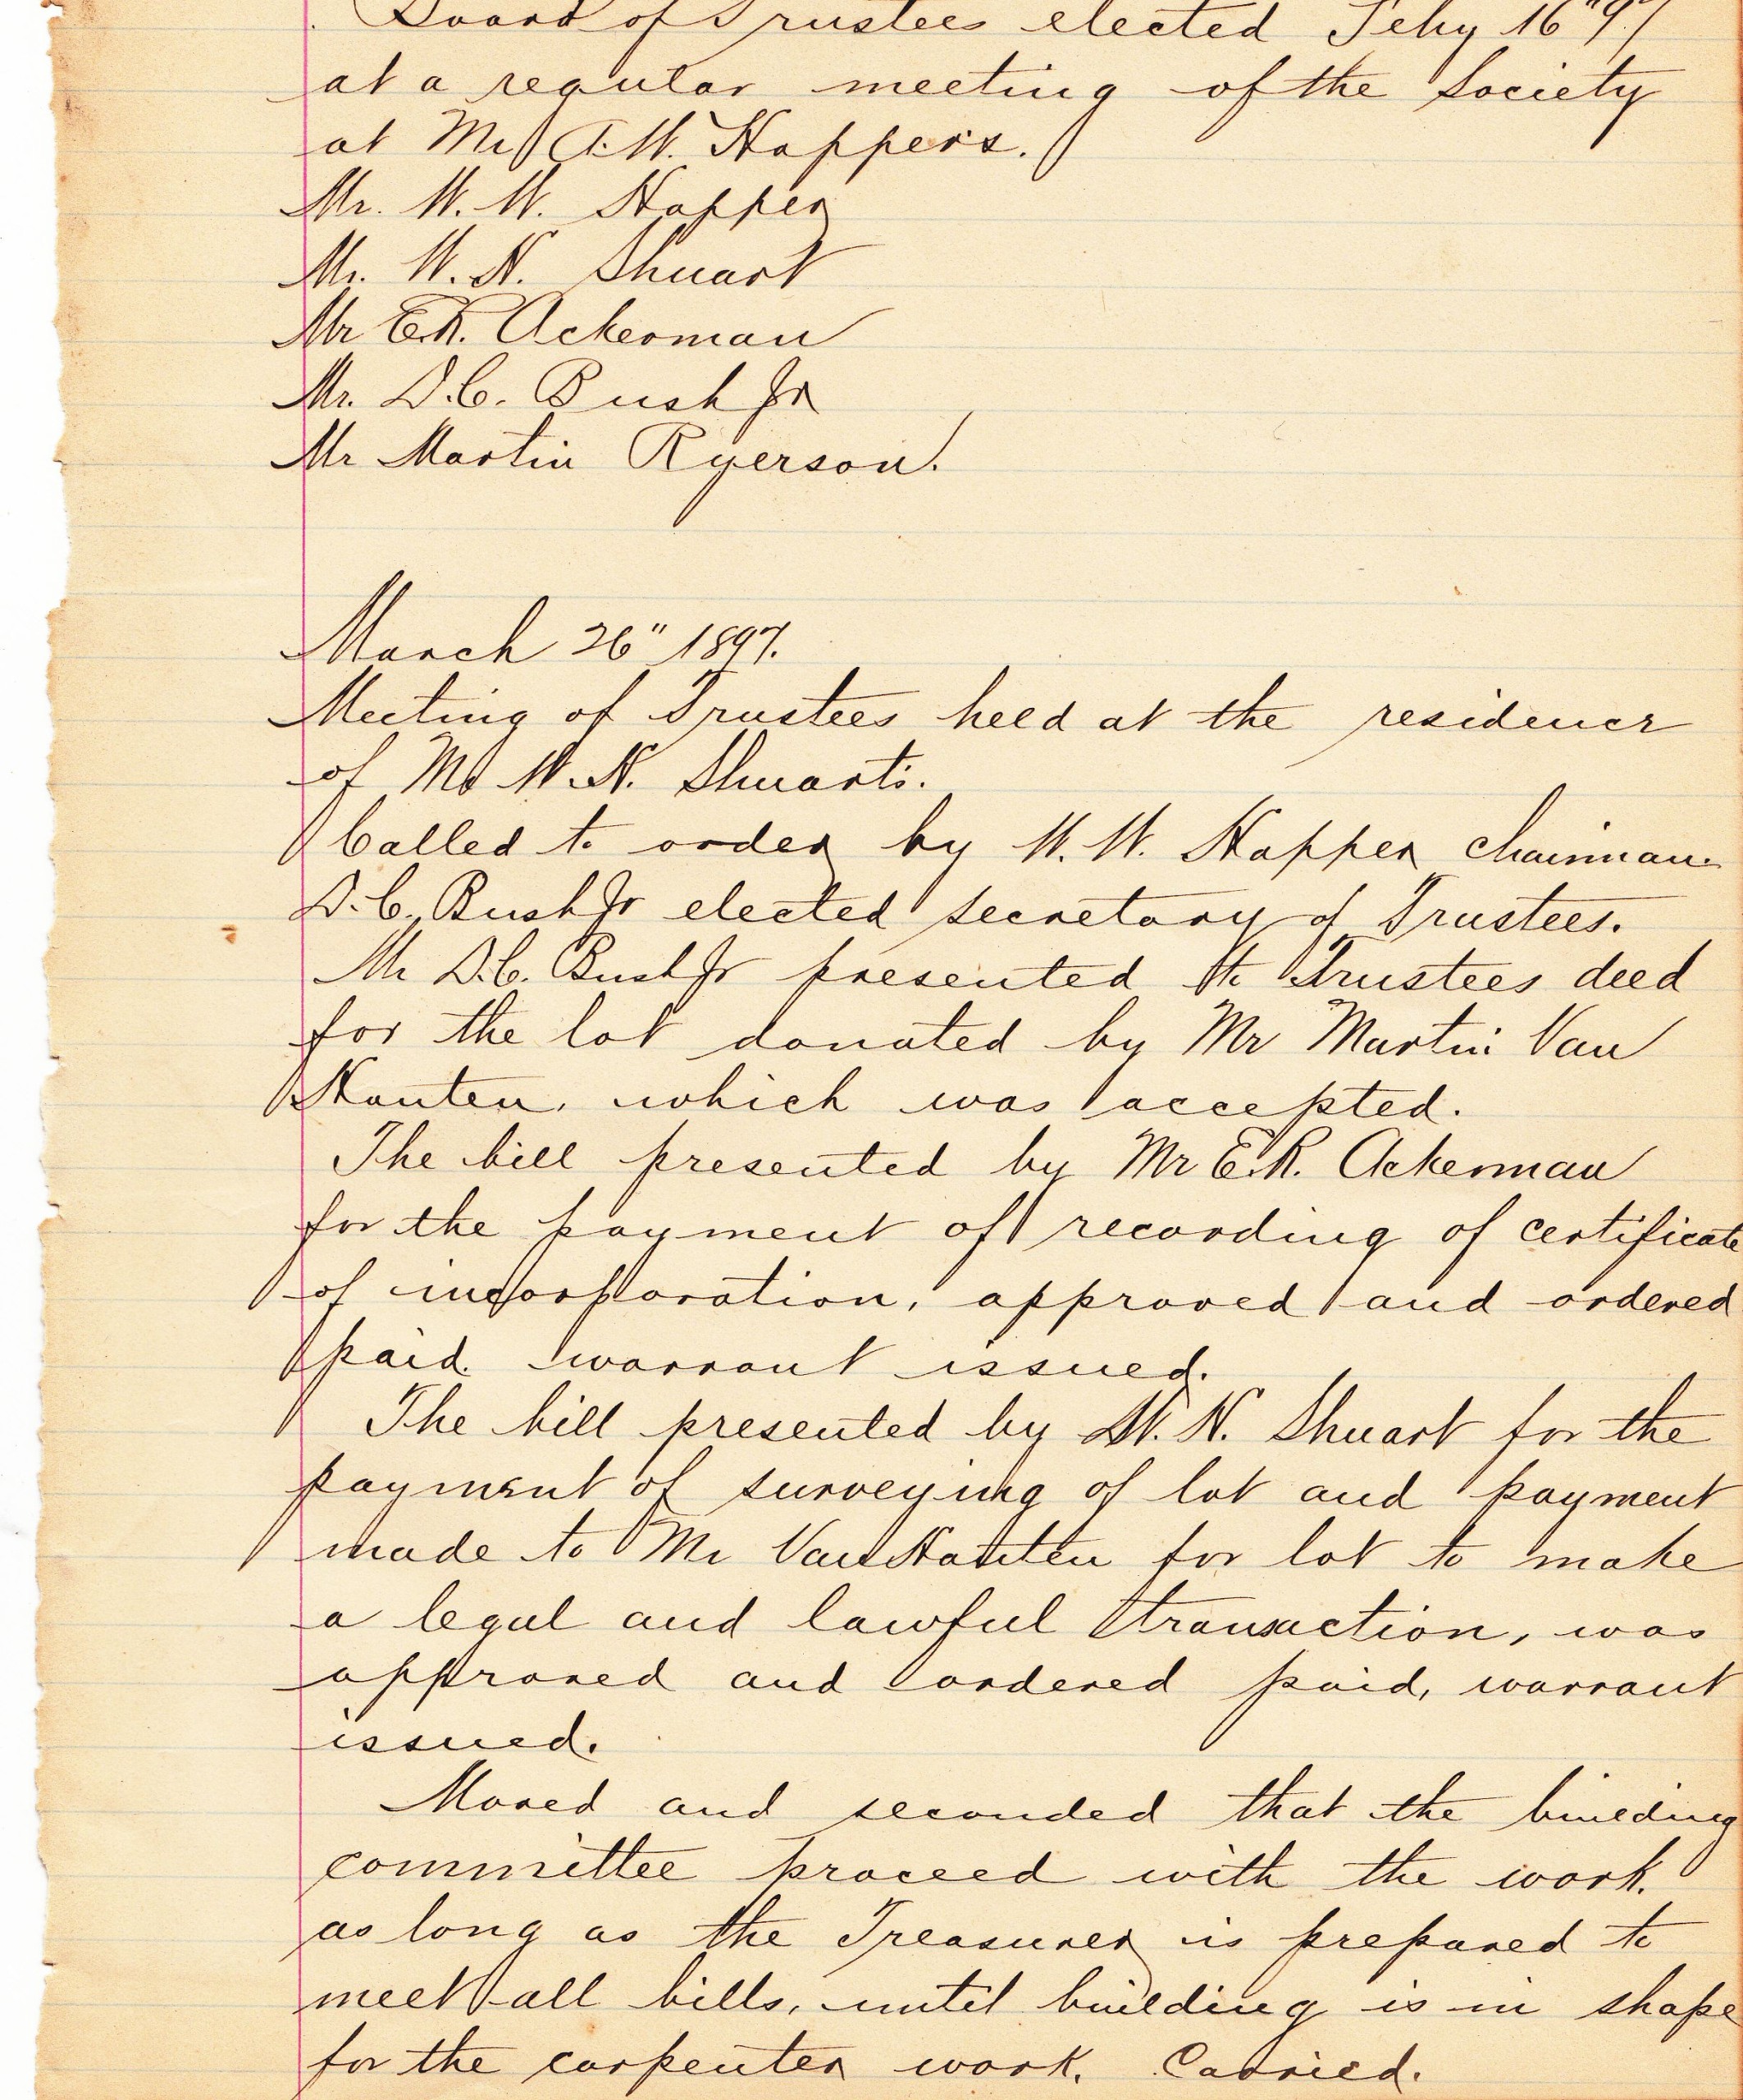 Board of Trustees elected Feby 16" 97
at a regular meeting of the Society
at Mr A. W. Hoppers.
Mr. W. W. Hopper
Mr. W. H. Shuart
Mr E.R. Ackerman
Mr. D.C. Bush Jr
Mr Martin Ryerson.
March 26" 1897.
Meeting of Trustees held at the residence
of Mr W. H. Shuarts.
Called to order by W. W. Hopper chairman.
D.C. Bush Jr elected secretary of Trustees.
Mr D.C. Bush Jr presented to Trustees deed
for the lot donated by Mr Martin Van
Houten, which was accepted.
The bill presented by Mr E.R. Ackerman
for the payment of recording of certificate
of incorporation, approved and ordered
paid. warrant issued.
The bill presented by W. H. Shuart for the
payment of surveying of lot and payment
made to Mr Van Houten for lot to make
a legal and lawful transaction, was
approved and ordered paid, warrant
issued.
Moved and seconded that the building
committee proceed with the work.
as long as the Treasurer is prepared to
meet all bills, until building is in shape
for the carpenter work. Carried.